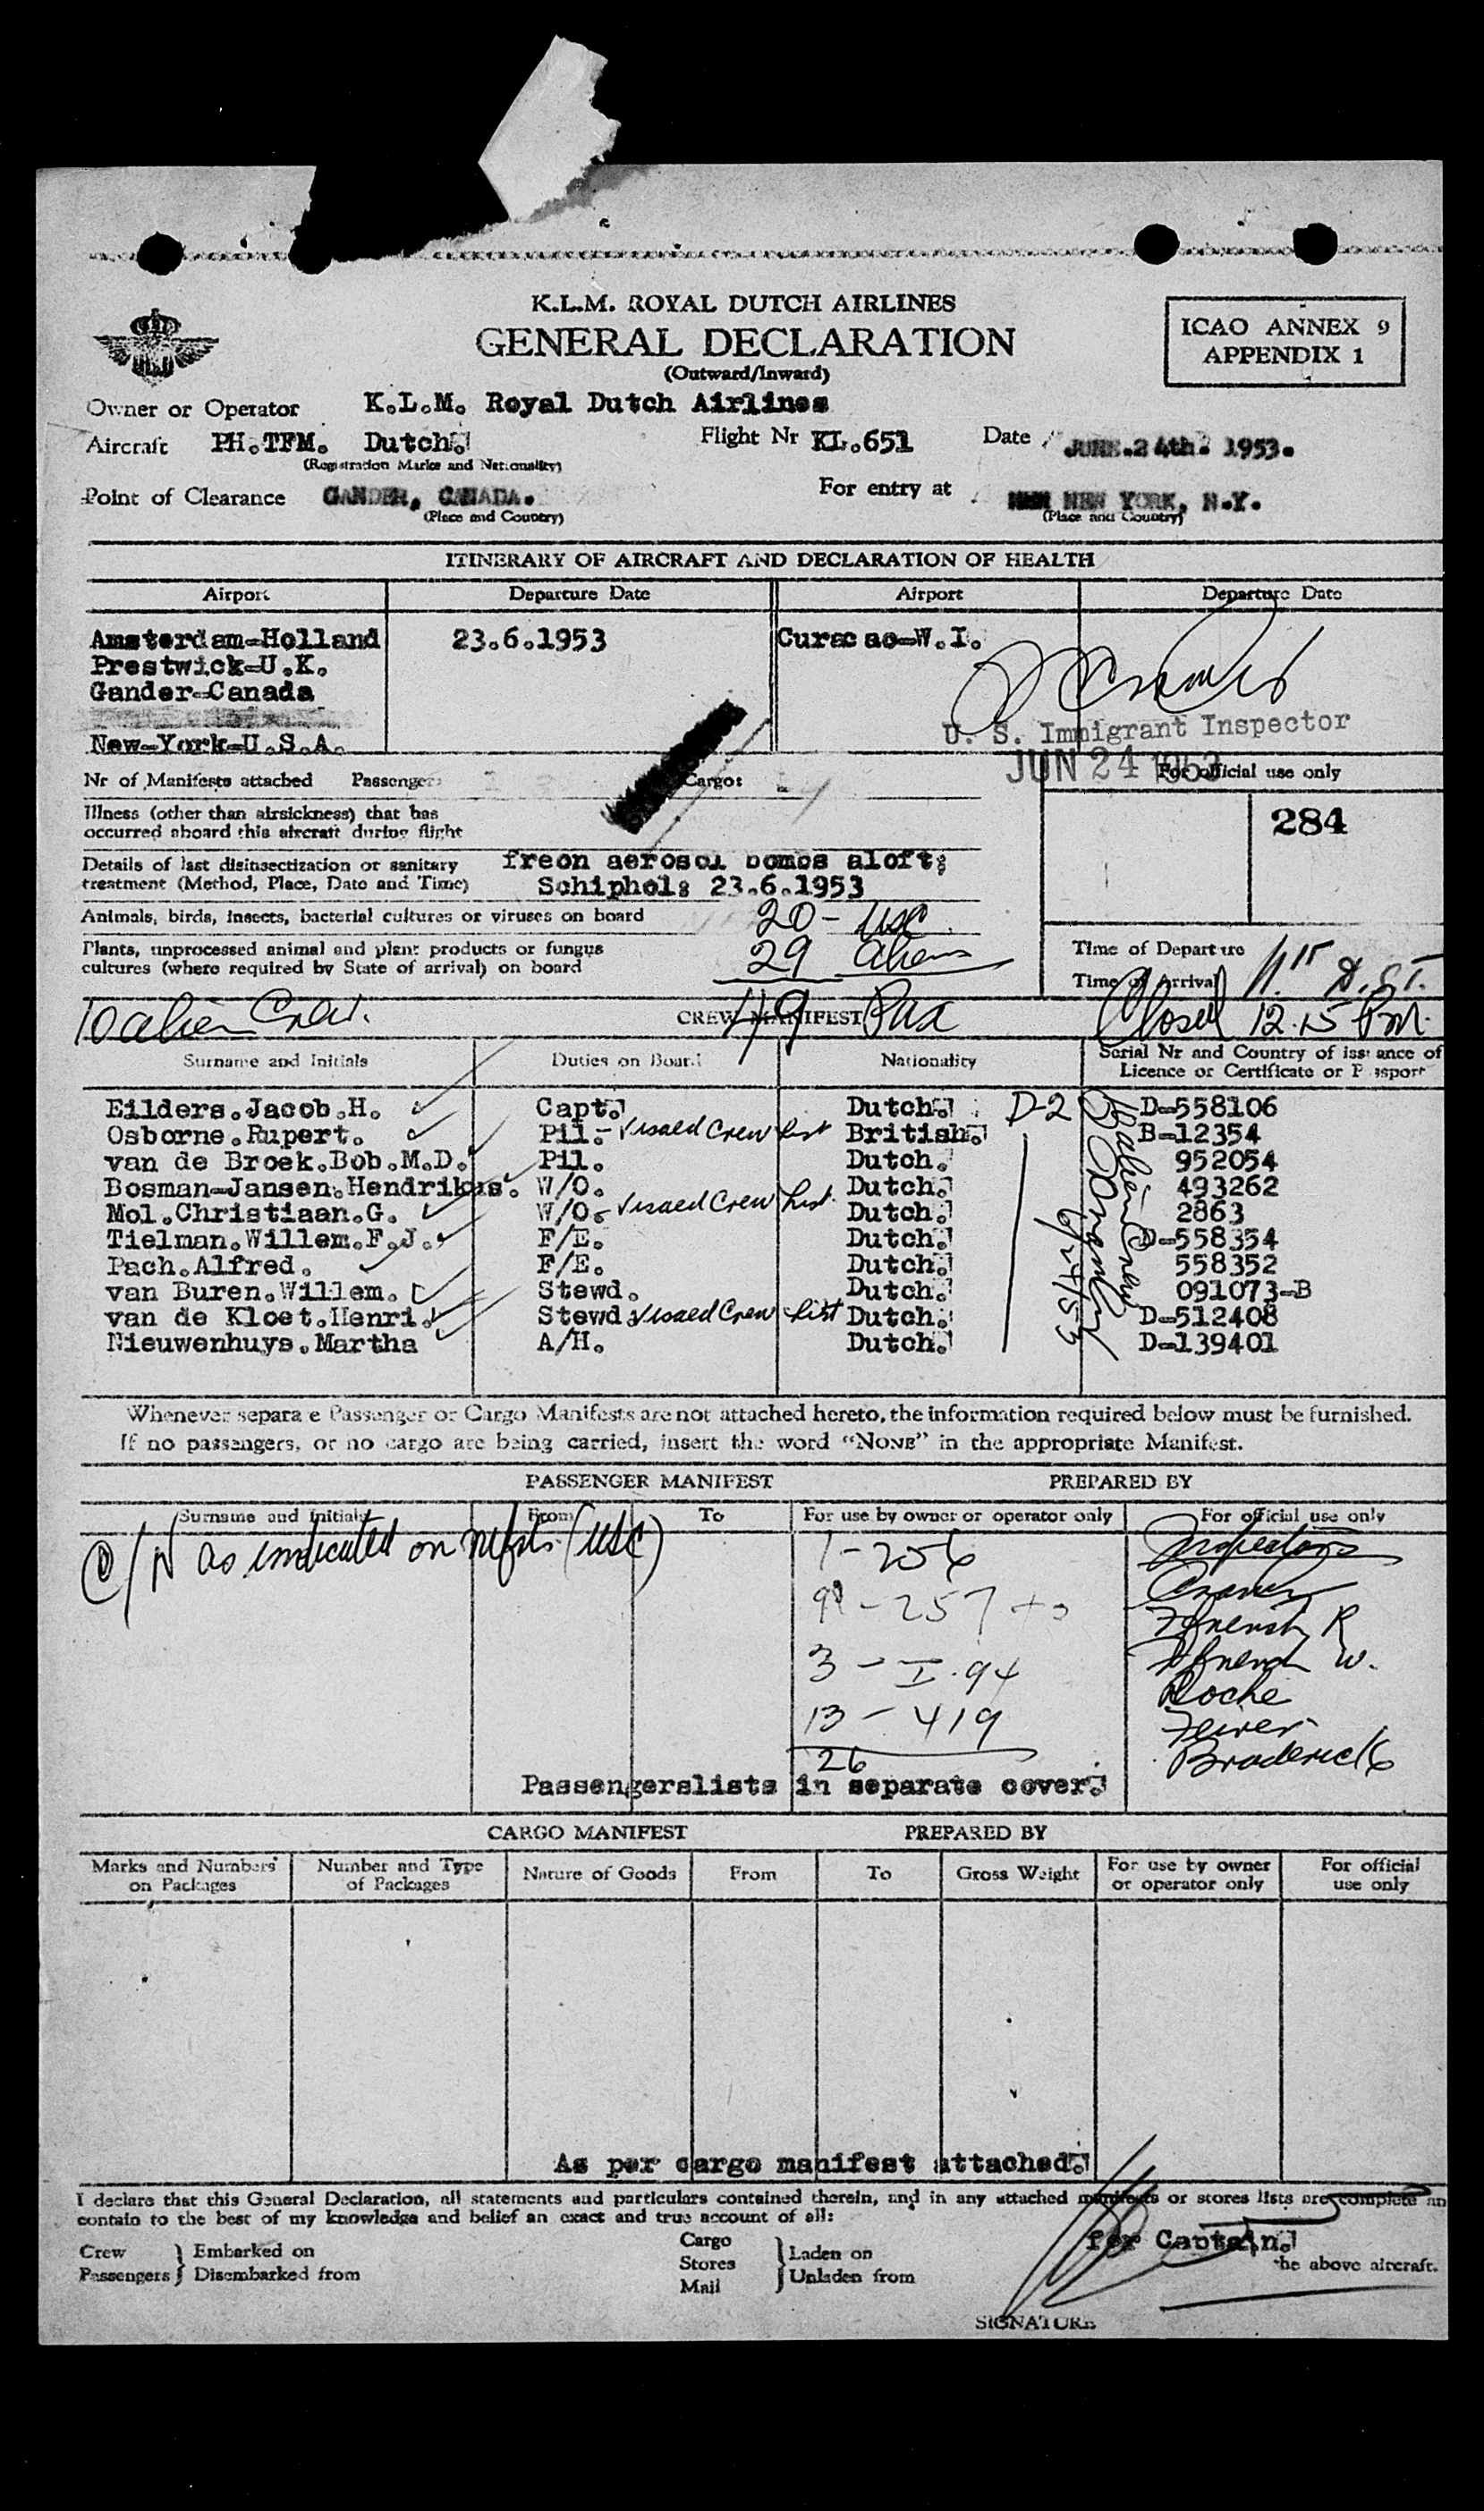 K.L.M. ROYAL DUTCH AIRLINES
GENERAL DECLARATION
(Outward/Inward)
ICAO ANNEX 9
APPENDIX 1
Owner or Operator K.L.M. Royal Dutch Airlines
Aircraft PH.TFM. Dutch. Flight Nr KL.651 Date JUNE.24th. 1953.
(Registration Marks and Nationality)
Point of Clearance GANDER, CANADA. For entry at NEW YORK, N.Y.
(Place and Country) (Place and Country)
ITINERARY OF AIRCRAFT AND DECLARATION OF HEALTH
Airport Departure Date Airport Departure Date
Amsterdam-Holland 23.6.1953 Curacao-W.I.
Prestwick-U.K.
Gander-Canada
New-York-U.S.A.
U. S. Immigrant Inspector
JUN 24 1953
Nr of Manifests attached Passenger: Cargo: For official use only
Illness (other than airsickness) that has
occurred aboard this aircraft during flight
284
Details of last disinsectization or sanitary
treatment (Method, Place, Date and Time)
freon aerosol bombs aloft;
Schiphol; 23.6.1953
Animals, birds, insects, bacterial cultures or viruses on board
20 - USC
Plants, unprocessed animal and plant products or fungus
cultures (where required by State of arrival) on board
29 aliens
Time of Departure
Time of Arrival 11.15 D.S.T.
10 alien Crew. CREW MANIFEST 49 Pax Closed 12.15 PM.
Surname and Initials Duties on Board Nationality Serial Nr and Country of issuance of
Licence or Certificate or Passport
Eilders.Jacob.H. Capt. Dutch. D-2 D-558106
Osborne.Rupert. Pil. - Visaed Crew List British. B-12354
van de Broek.Bob.M.D. Pil. Dutch. 952054
Bosman-Jansen.Hendrikus. W/O. Dutch. 493262
Mol.Christiaan.G. W/O. Visaed Crew List. Dutch. 2863
Tielman.Willem.F.J. F/E. Dutch. D-558354
Pach.Alfred. F/E. Dutch. 558352
van Buren.Willem. Stewd. Dutch. 091073-B
van de Kloet.Henri. Stewd. Visaed Crew List Dutch. D-512408
Nieuwenhuys.Martha A/H. Dutch. D-139401
6/24/53
Whenever separate Passenger or Cargo Manifests are not attached hereto, the information required below must be furnished.
If no passengers, or no cargo are being carried, insert the word “NONE” in the appropriate Manifest.
PASSENGER MANIFEST PREPARED BY
Surname and Initials From To For use by owner or operator only For official use only
as indicated on (USC)
1 - 256 Inspectors
9 - 257
3 - I-94
13 - 419 Roche
26 Broderick
Passengerslists in separate cover.
CARGO MANIFEST PREPARED BY
Marks and Numbers
on Packages
Number and Type
of Packages
Nature of Goods From To Gross Weight
For use by owner
or operator only
For official
use only
As per cargo manifest attached.
I declare that this General Declaration, all statements and particulars contained therein, and in any attached manifests or stores lists are complete an
contain to the best of my knowledge and belief an exact and true account of all:
for Captain.
Crew
Passengers
Embarked on
Disembarked from
Cargo
Stores
Mail
Laden on
Unladen from
the above aircraft.
SIGNATURE